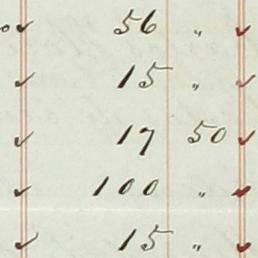 ✓ 56 " ✓
✓ 15 " ✓
✓ 17 50 ✓
✓ 100 " ✓
✓ 15 " ✓